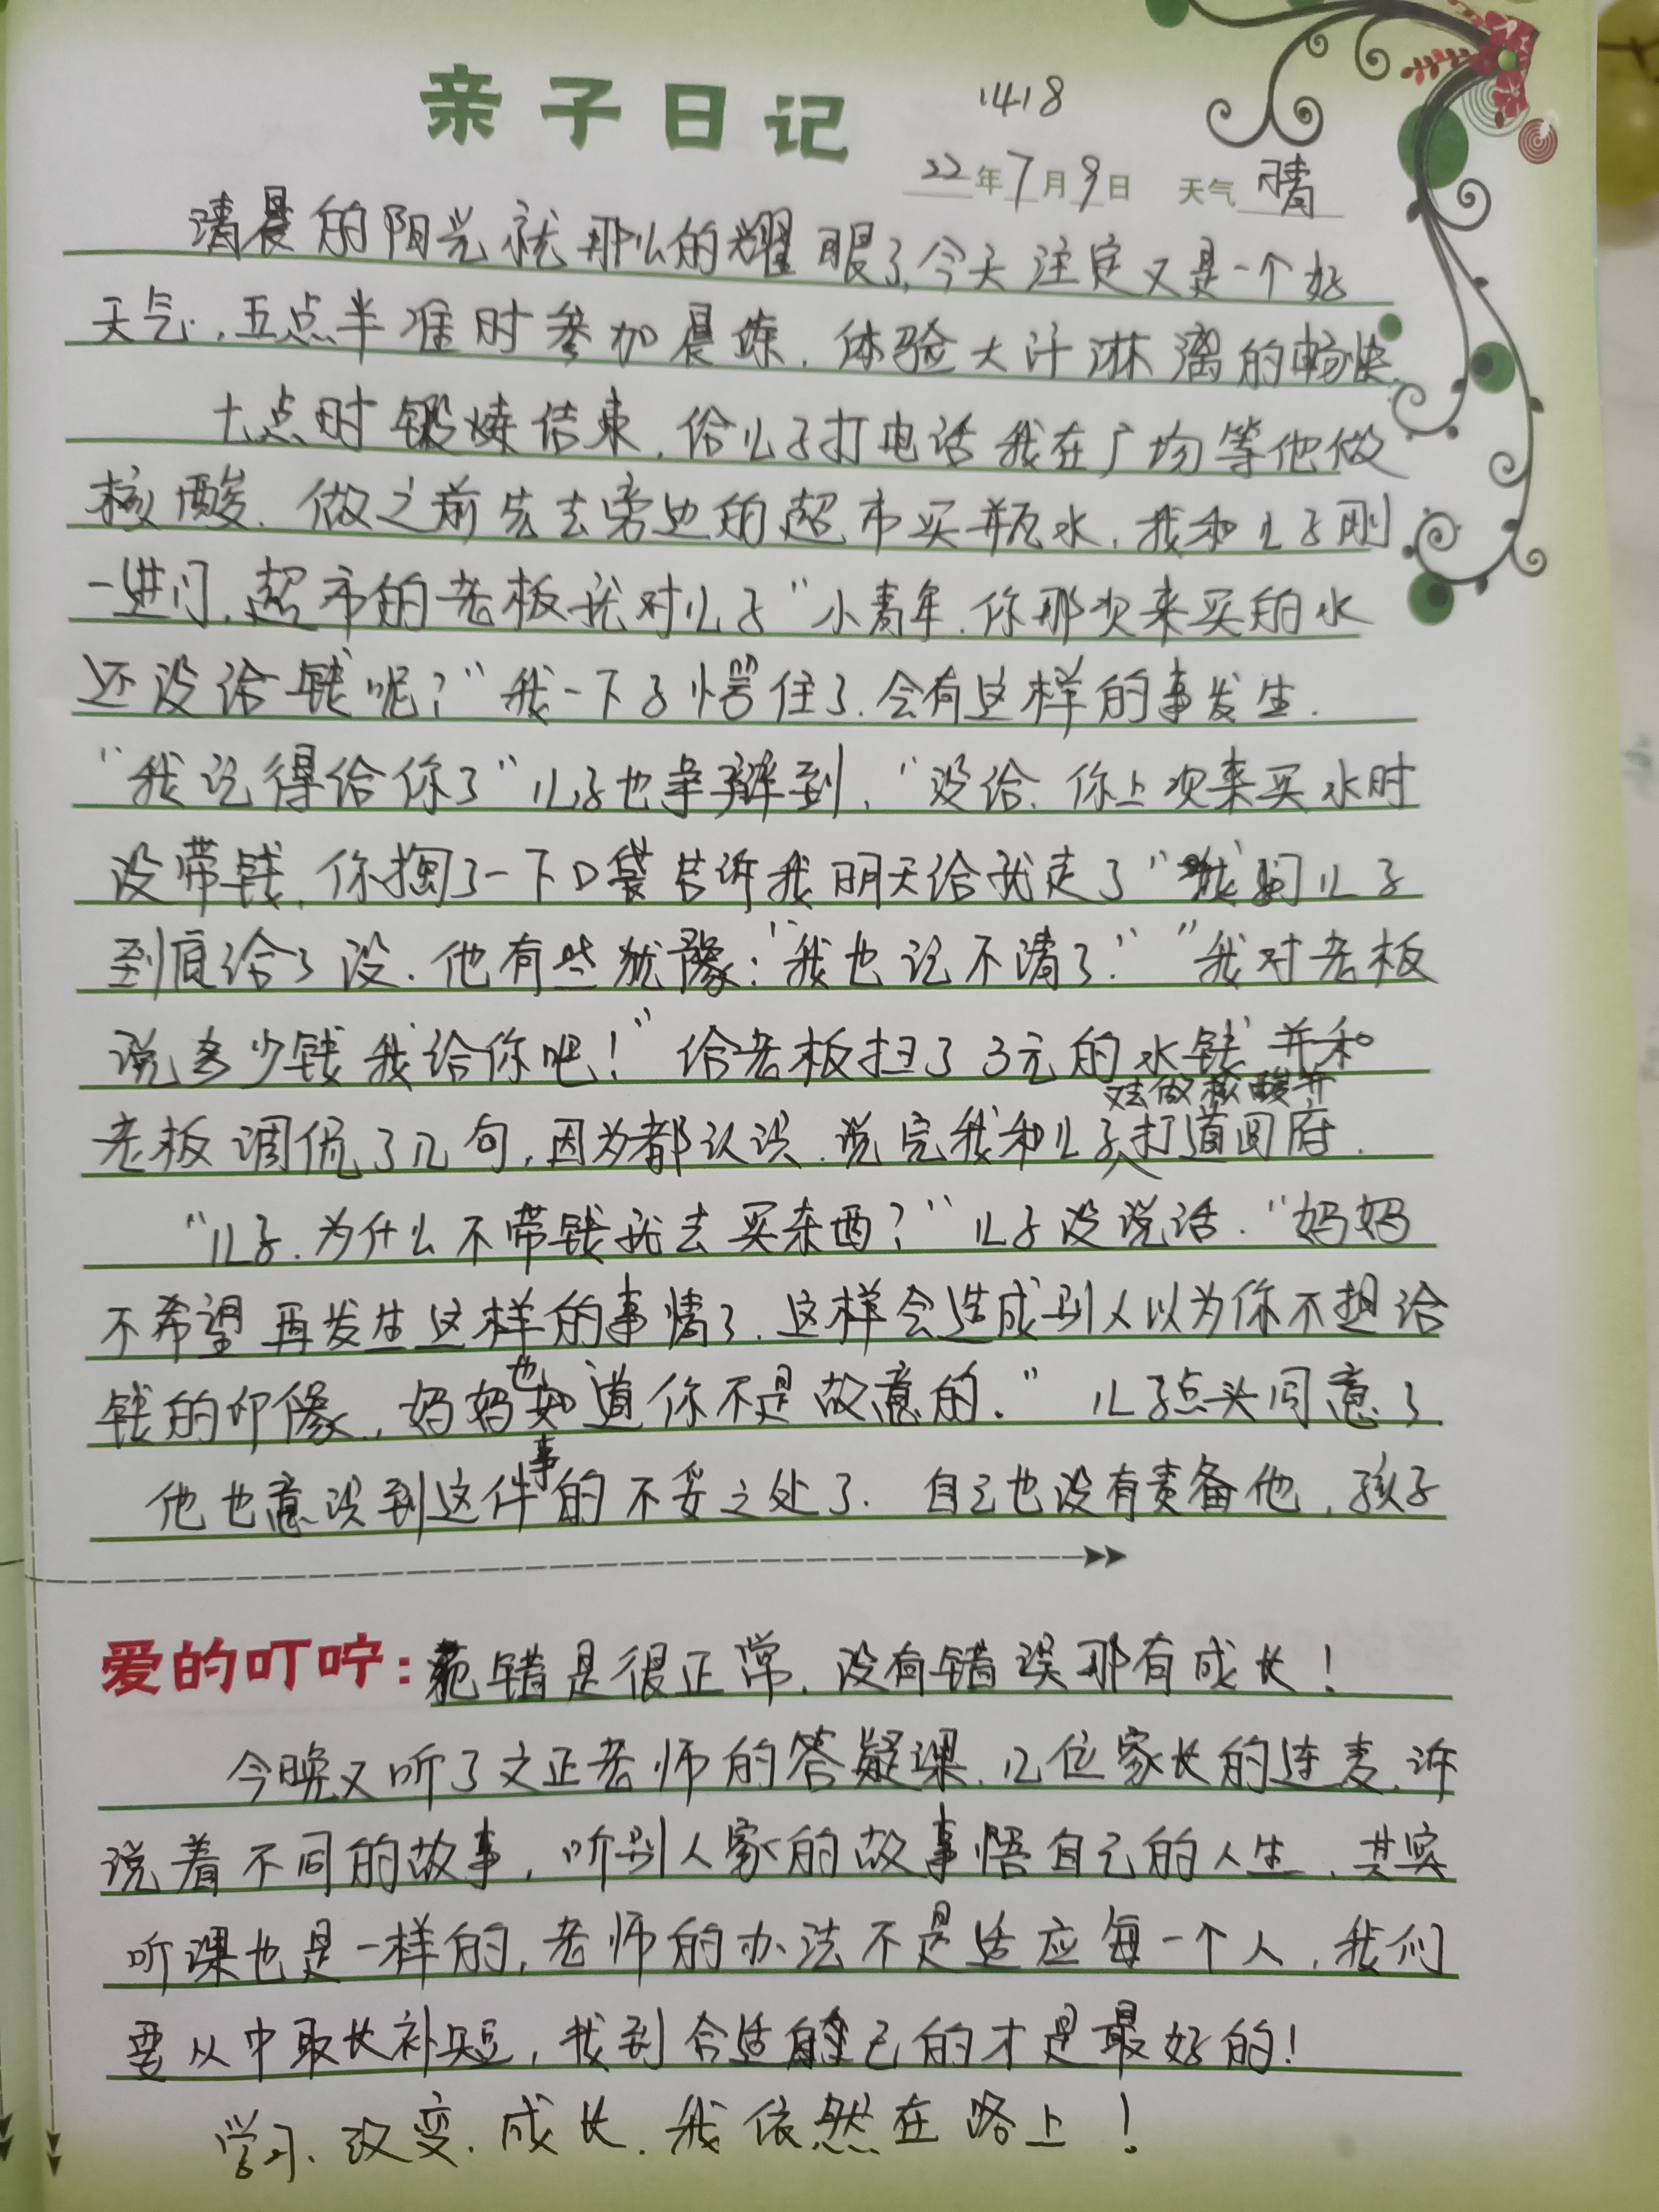 亲子日记
1418
22年7月9日 天气 晴
清晨的阳光就那么的耀眼了,今天注定又是一个好
天气.,五点半准时参加晨练.体验大汗淋漓的畅快.
七点时锻炼结束.给儿子打电话我在广场等他做
核酸.做之前先去旁边的超市买瓶水.我和儿子刚
一进门.超市的老板就对儿子"小青年.你那次来买的水
还没给钱呢?"我一下子愣住了.会有这样的事发生.
"我记得给你了"儿子也争辩到."没给.你上次来买水时
没带钱.你掏了一下口袋告诉我明天给就走了"我问儿子
到底给了没.他有些犹豫:"我也记不清了.""我对老板
说多少钱我给你吧!"给老板扫了3元的水钱并和
老板调侃了几句,因为都认识.说完我和儿子又去做核酸并打道回府.
"儿子.为什么不带钱就去买东西?"儿子没说话."妈妈
不希望再发生这样的事情了.这样会造成别人以为你不想给
钱的印像.,妈妈也知道你不是故意的."儿子点头同意了.
他也意识到这件事的不妥之处了.自己也没有责备他,孩子
爱的叮咛:犯错是很正常.没有错误那有成长!
今晚又听了文正老师的答疑课.几位家长的连麦.诉
说着不同的故事,听别人家的故事悟自己的人生,其实
听课也是一样的,老师的办法不是适应每一个人,我们
要从中取长补短,找到合适自己的才是最好的!
学习.改变.成长.我依然在路上!